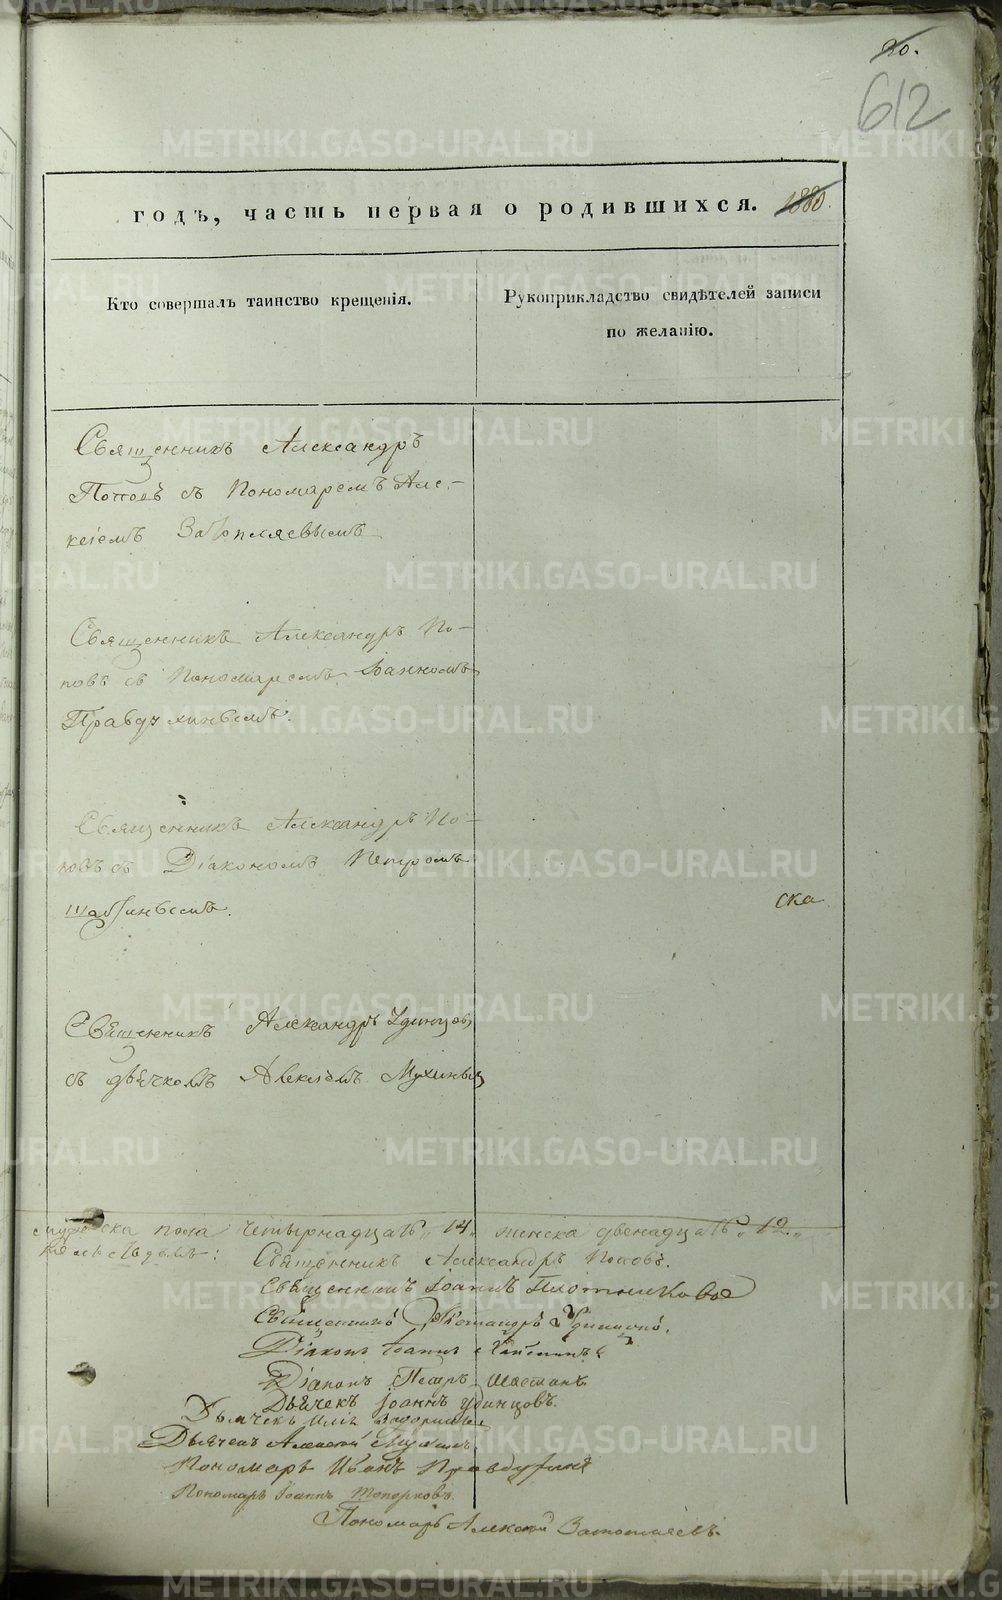 20.
612
годъ, часть первая о родившихся. 1880.
Кто совершалъ таинство крещенія.
Рукоприкладство свидѣтелей записи
по желанію.
Священникъ Александръ
Поповъ съ Пономаремъ Але-
ксіемъ
Священникъ Александръ По-
повъ съ Пономаремъ Іоанномъ
Правдухинымъ.
Священникъ Александръ По-
повъ съ Діакономъ Петромъ
ска
Священникъ Александръ Удинцов
съ дьячкомъ Алексіемъ Мухиным
мужеска пола четырнадцать „14„ женска двенадцать „12„
Священникъ Александръ Поповъ.
Священникъ Іоаннъ Плотниковъ
Священникъ Александръ Удинцовъ.
Діаконъ Іоаннъ
Діаконъ Петръ
Дьячекъ Іоаннъ Удинцовъ.
Дьячекъ Илія
Дьячекъ Алексей Мухинъ.
Пономарь Иванъ Правдухинъ
Пономарь Іоаннъ Топорковъ.
Пономарь Алексей
METRIKI.GASO-URAL.RU